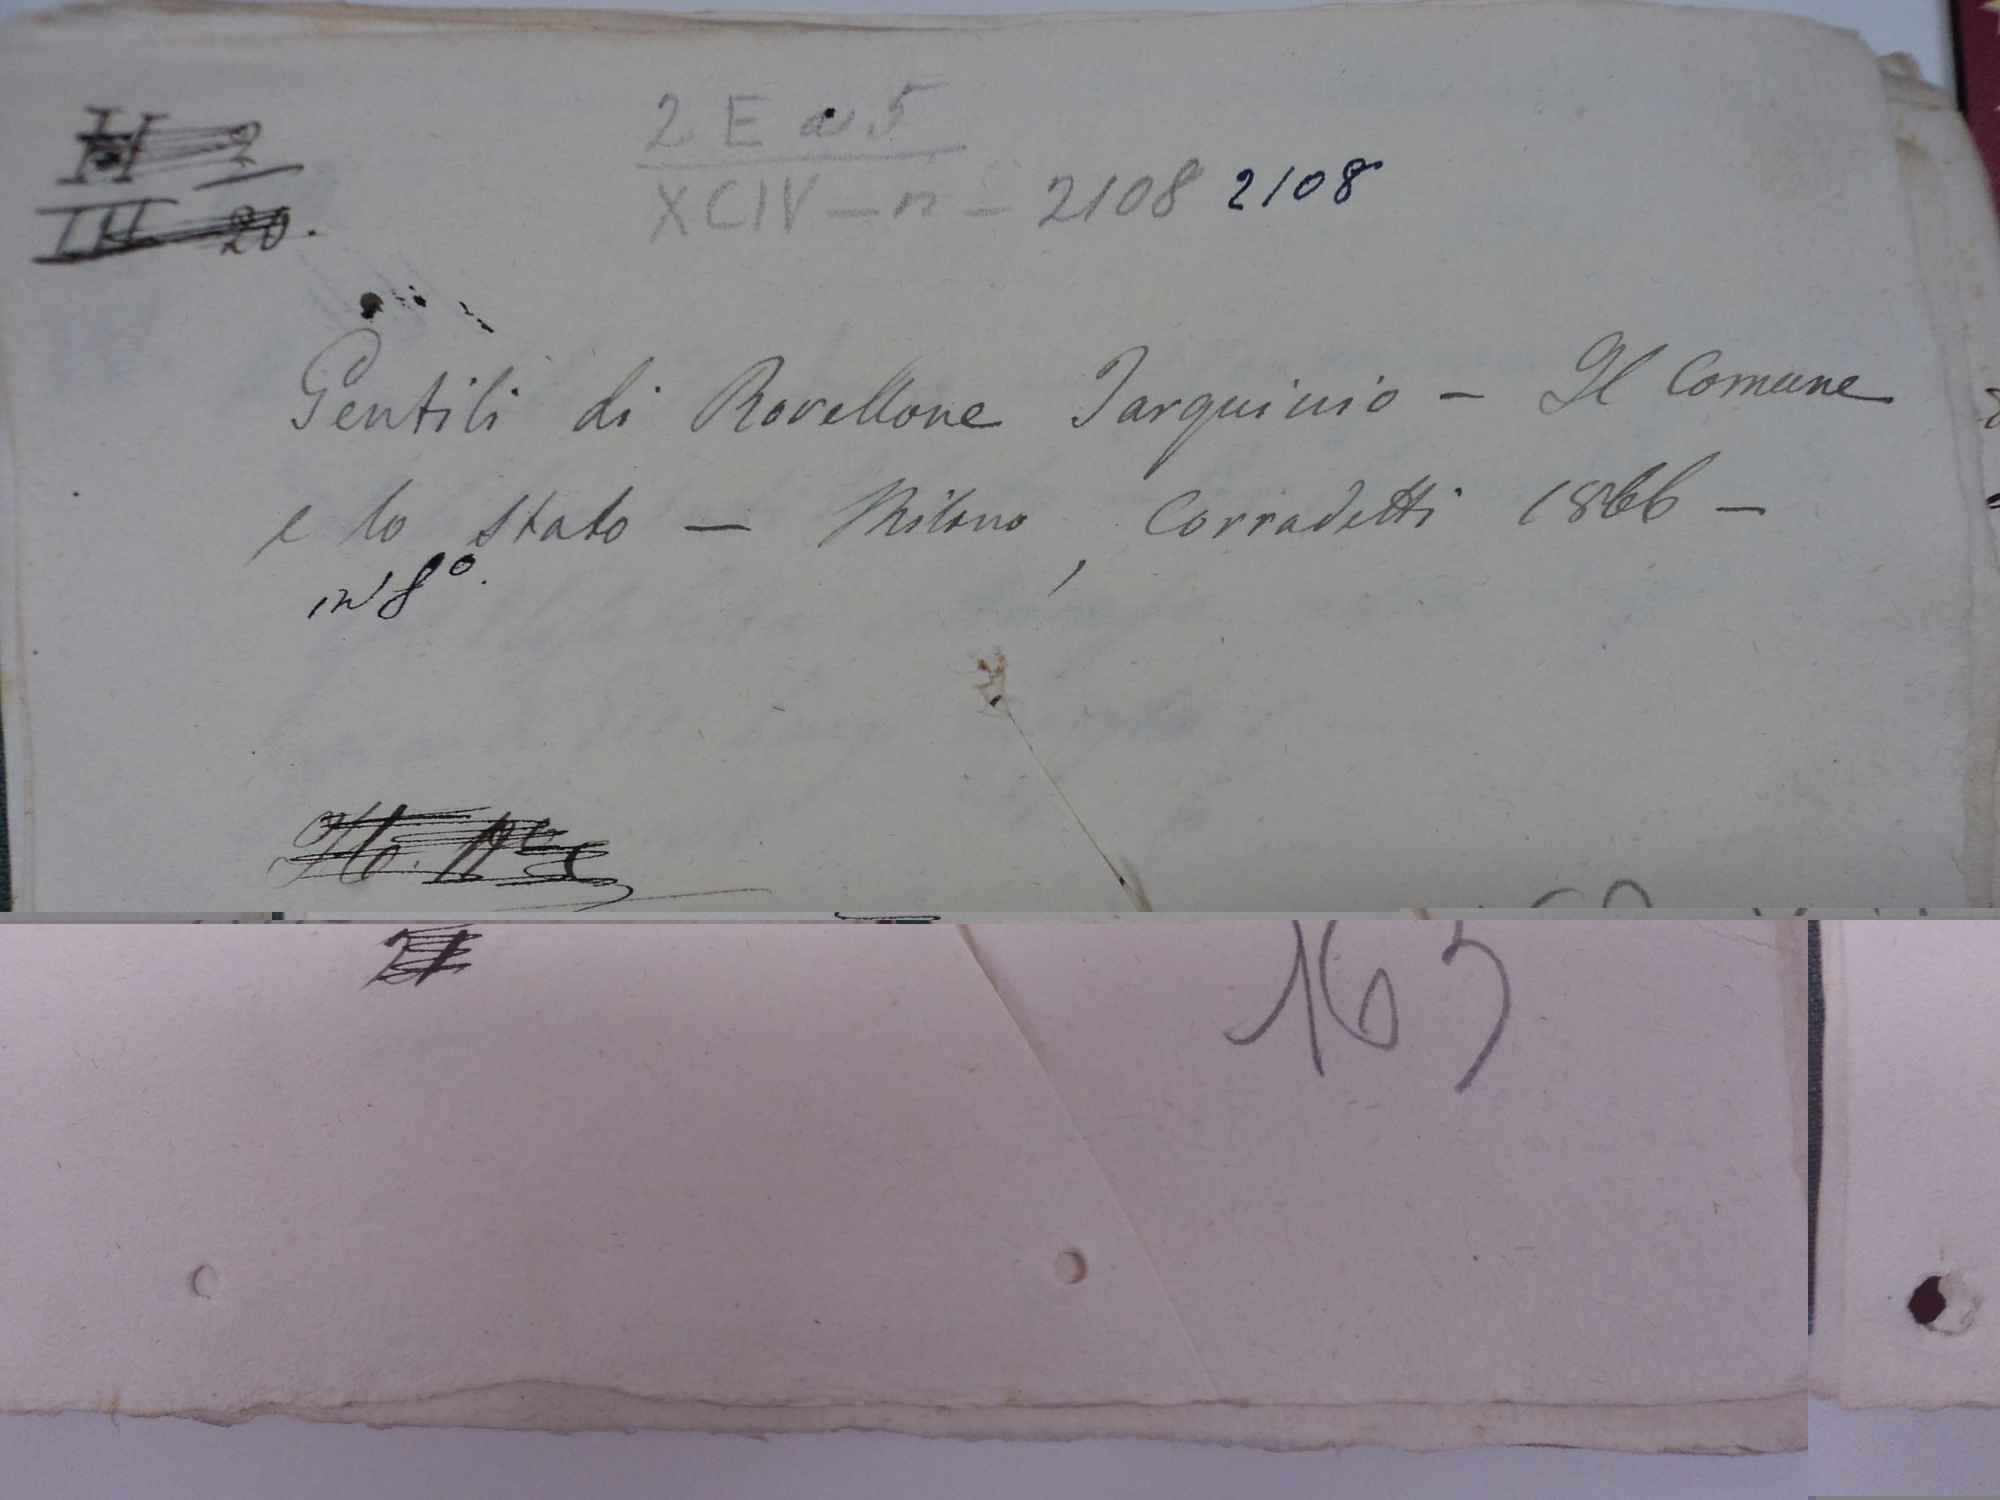 H 2
III 20.
2 E a 5
XCIV - n - 2108 2108
Gentili di Rovellone Tarquinio - Il Comune
e lo Stato - Milano, Corradetti 1866 -
in 8°.
21
163